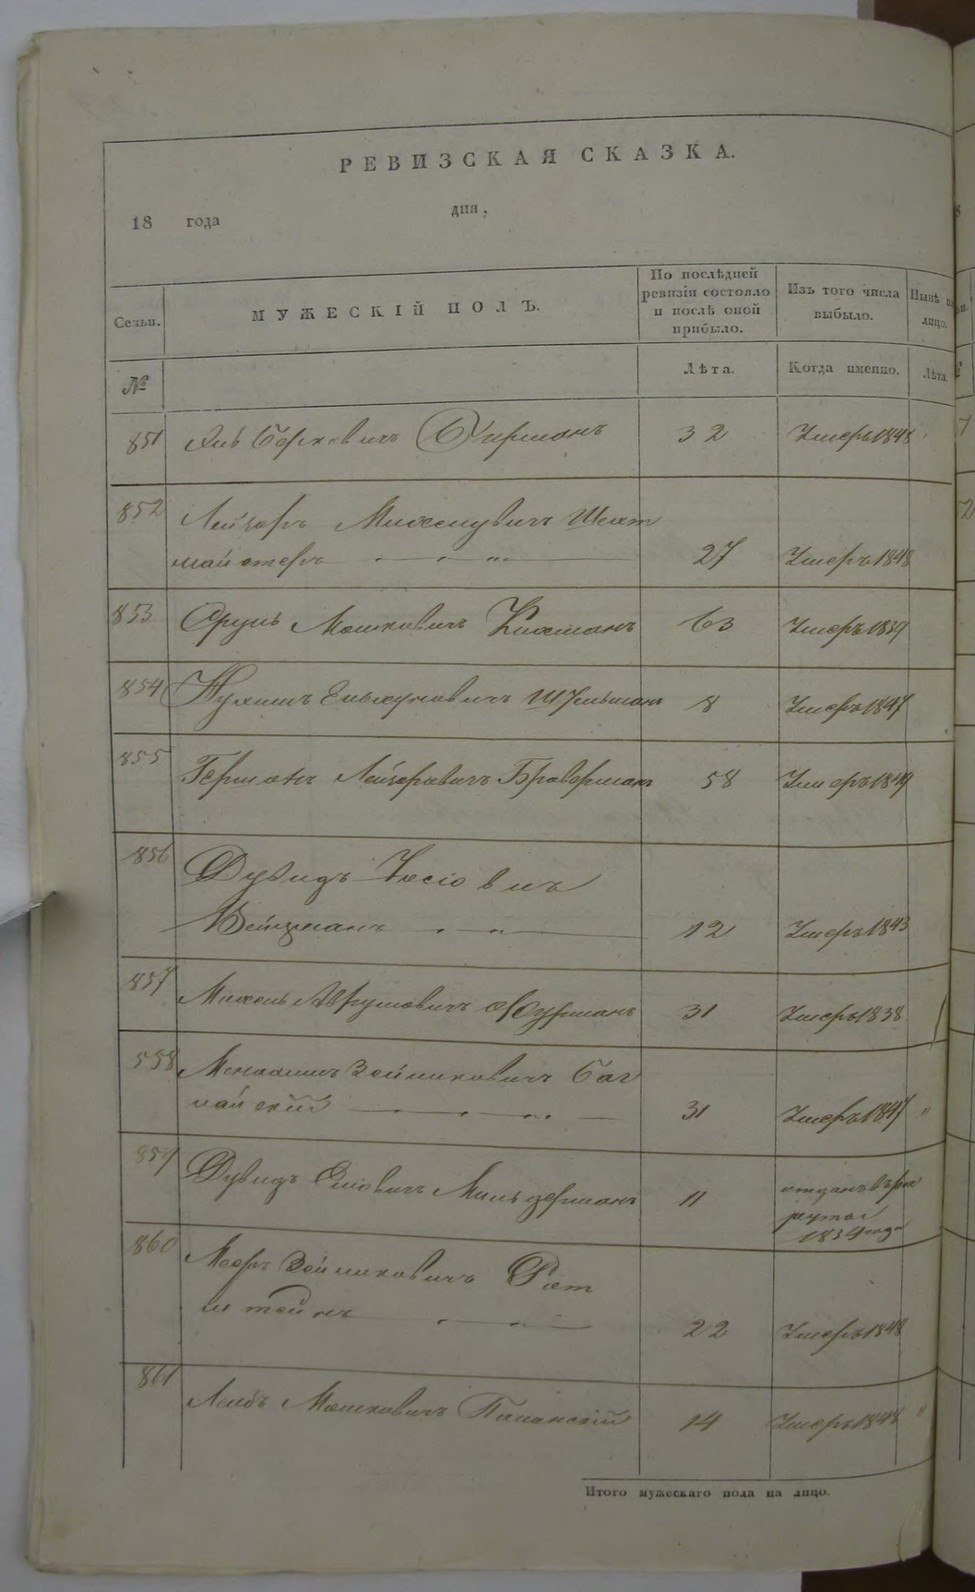 РЕВИЗСКАЯ СКАЗКА.
18 года дня,
Семьи. МУЖЕСКІЙ ПОЛЪ. По послѣдней ревизіи состояло и послѣ оной прибыло. Изъ того числа выбыло. Нынѣ на лицо.
№ Лѣта. Когда именно. Лѣта.
851 Берковичъ 32 Умеръ 1848
852 Лейзоръ Михелувичъ Шехт
майстеръ 27 Умеръ 1848
853 Сруль Мошковичъ 63 Умеръ 1839
854 Нухимъ Шульманъ 8 Умеръ 1847
855 Гершонъ Лейзоровичъ Броверманъ 58 Умеръ 1849
856 Дувидъ Іосіовичъ
Вейцманъ 12 Умеръ 1843
857 Михель Аврумовичъ Фурманъ 31 Умеръ 1838
558 Зейликовичъ 31 Умеръ 1847
859 Дувидъ 11 отданъ въ ре
круты
1834 года
860 Мееръ Зейликовичъ Рот
штейнъ 22 Умеръ 1848
861 Лейбъ Мошковичъ 14 Умеръ 1848
Итого мужескаго пола на лицо.